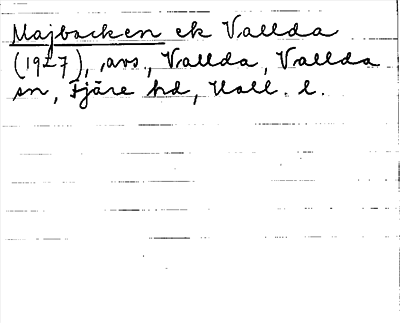 Majbacken ek Vallda
(1927), avs., Vallda, Vallda
sn, Fjäre hd, Hall. l.